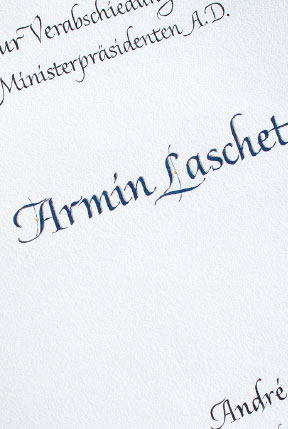 ur Verabschiedung
Ministerpräsidenten A.D.
Armin Laschet
André